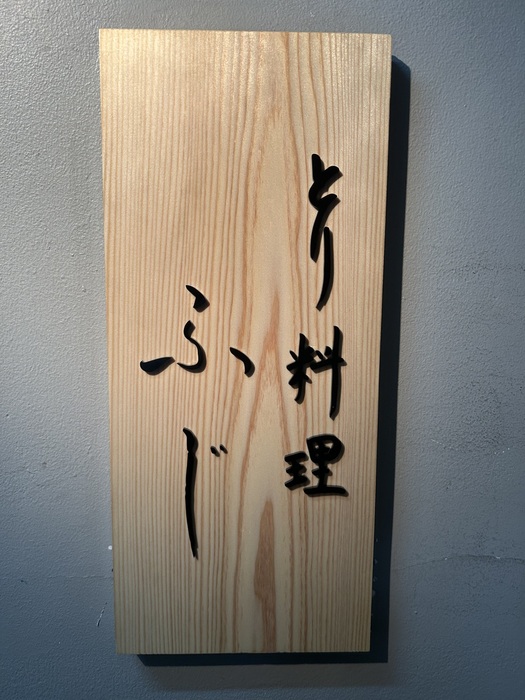 とり料理
ふじ